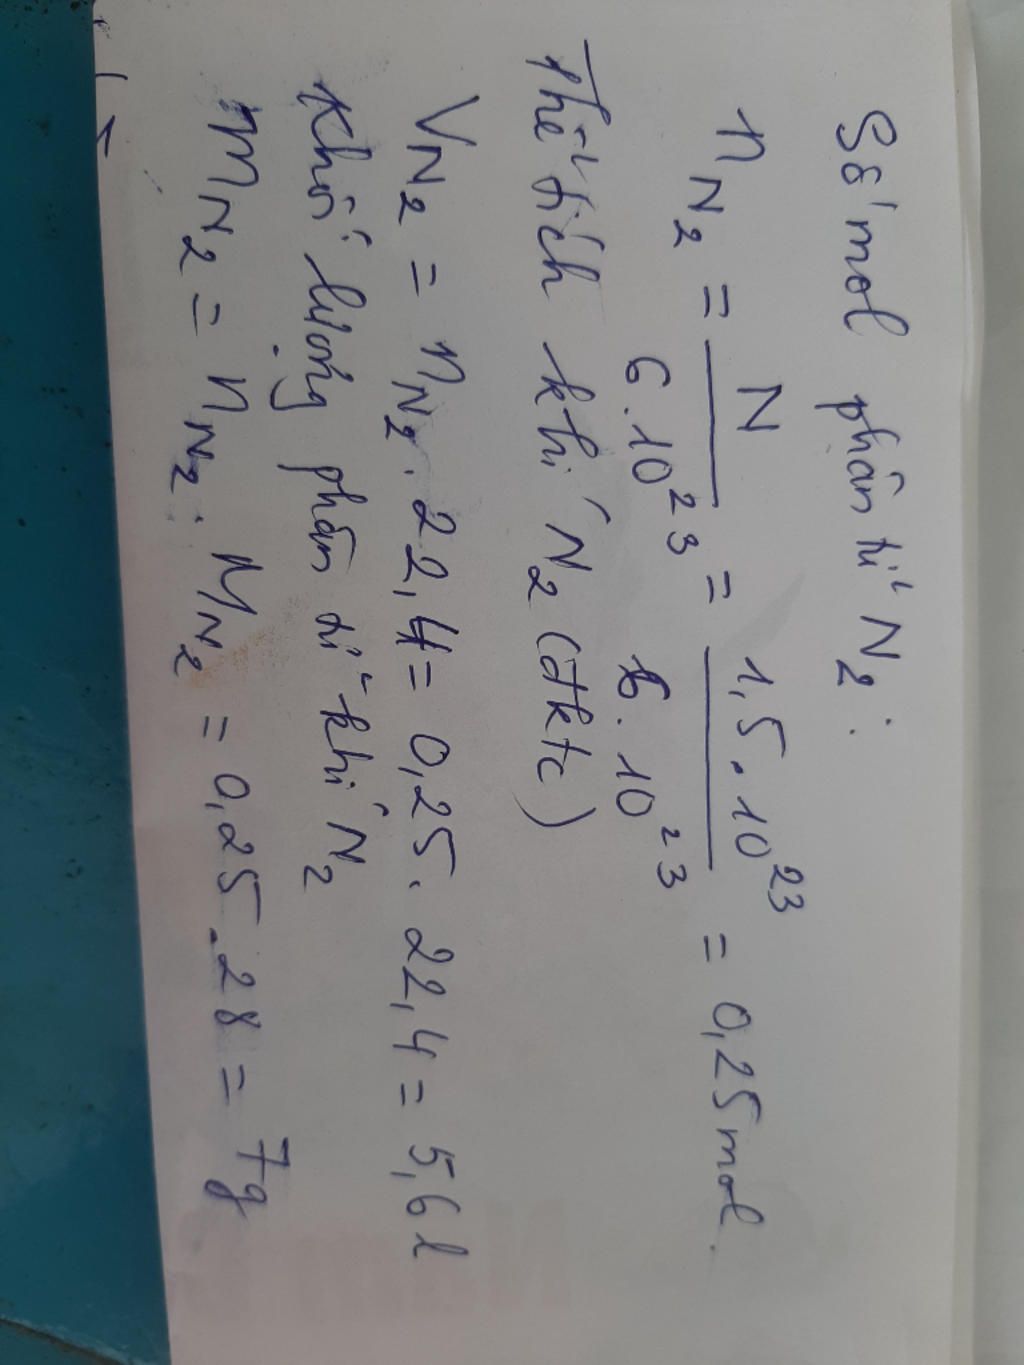 Số mol phân tử N2:
nN2 = N / 6.10^23 = 1,5.10^23 / 6.10^23 = 0,25 mol.
Thể tích khí N2 (đktc)
VN2 = nN2 . 22,4 = 0,25 . 22,4 = 5,6 l
Khối lượng phân tử khí N2
mN2 = nN2 . MN2 = 0,25 . 28 = 7g